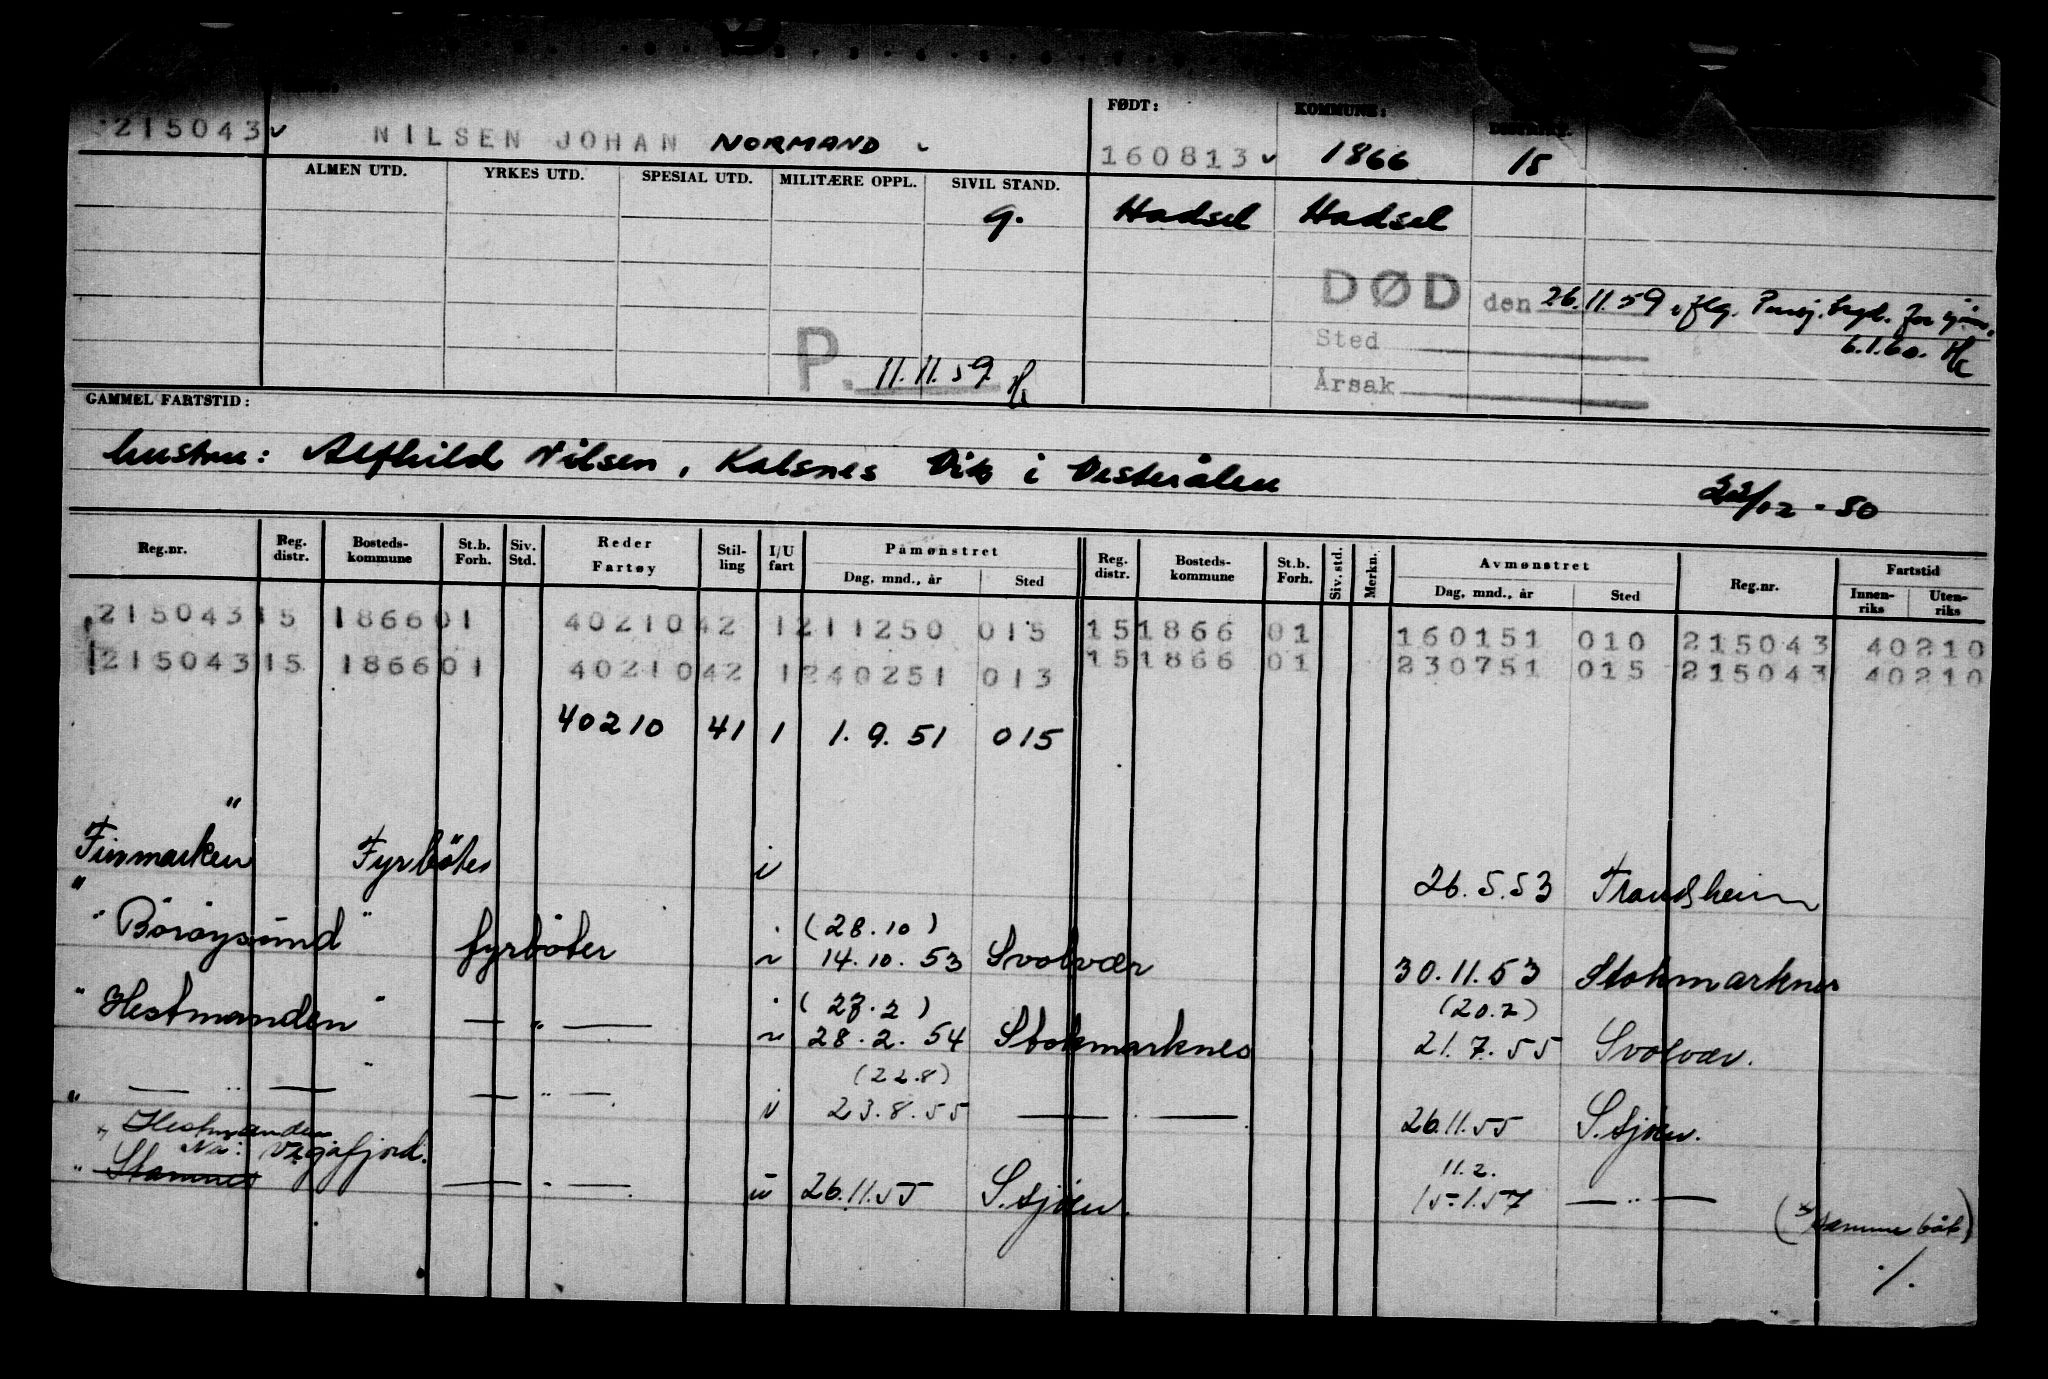 FØDT: KOMMUNE:
215043 NILSEN JOHAN NORMAND 160813 1866 15
ALMEN UTD. YRKES UTD. SPESIAL UTD. MILITÆRE OPPL. SIVIL STAND.
g. Hadsel Hadsel
DØD den 26.11.59, iflg. for sjøm.
Sted 6.1.60.
P. 11.11.59 Årsak
GAMMEL FARTSTID:
hustru: Alfhild Nilsen, Kalsnes Vik i Vesterålen
22/12-50
Reg.nr. Reg. distr. Bosteds-kommune St.b. Forh. Siv. Std. Reder Fartøy Stil-ling I/U fart Påmønstret Dag, mnd., år Sted Reg. distr. Bosteds-kommune St.b. Forh. Siv. std. Merkn. Avmønstret Dag, mnd., år Sted Reg.nr. Fartstid Innen-riks Uten-riks
215043 15 1866 01 40210 42 1 211250 015 15 1866 01 160151 010 215043 40210
215043 15 1866 01 40210 42 1 240251 013 15 1866 01 230751 015 215043 40210
40210 41 1 1.9.51 015
"Finmarken" Fyrbøter i 26.5.53 Trondheim
(28.10)
"Børøysund" fyrbøter 14.10.53 Svolvær 30.11.53 Stokmarknes
(27.2) (20.7)
"Hestmanden" — " — 28.2.54 Stokmarknes 21.7.55 Svolvær.
(22.8)
" — " — " — " — 23.8.55 — " — 26.11.55 S.sjøen.
Hestmanden
Nå: Vegafjord. 11.2.
" Stamnes — " — 26.11.55 S.sjøen. 15.1.57 — " —
(* samme båt)
./.